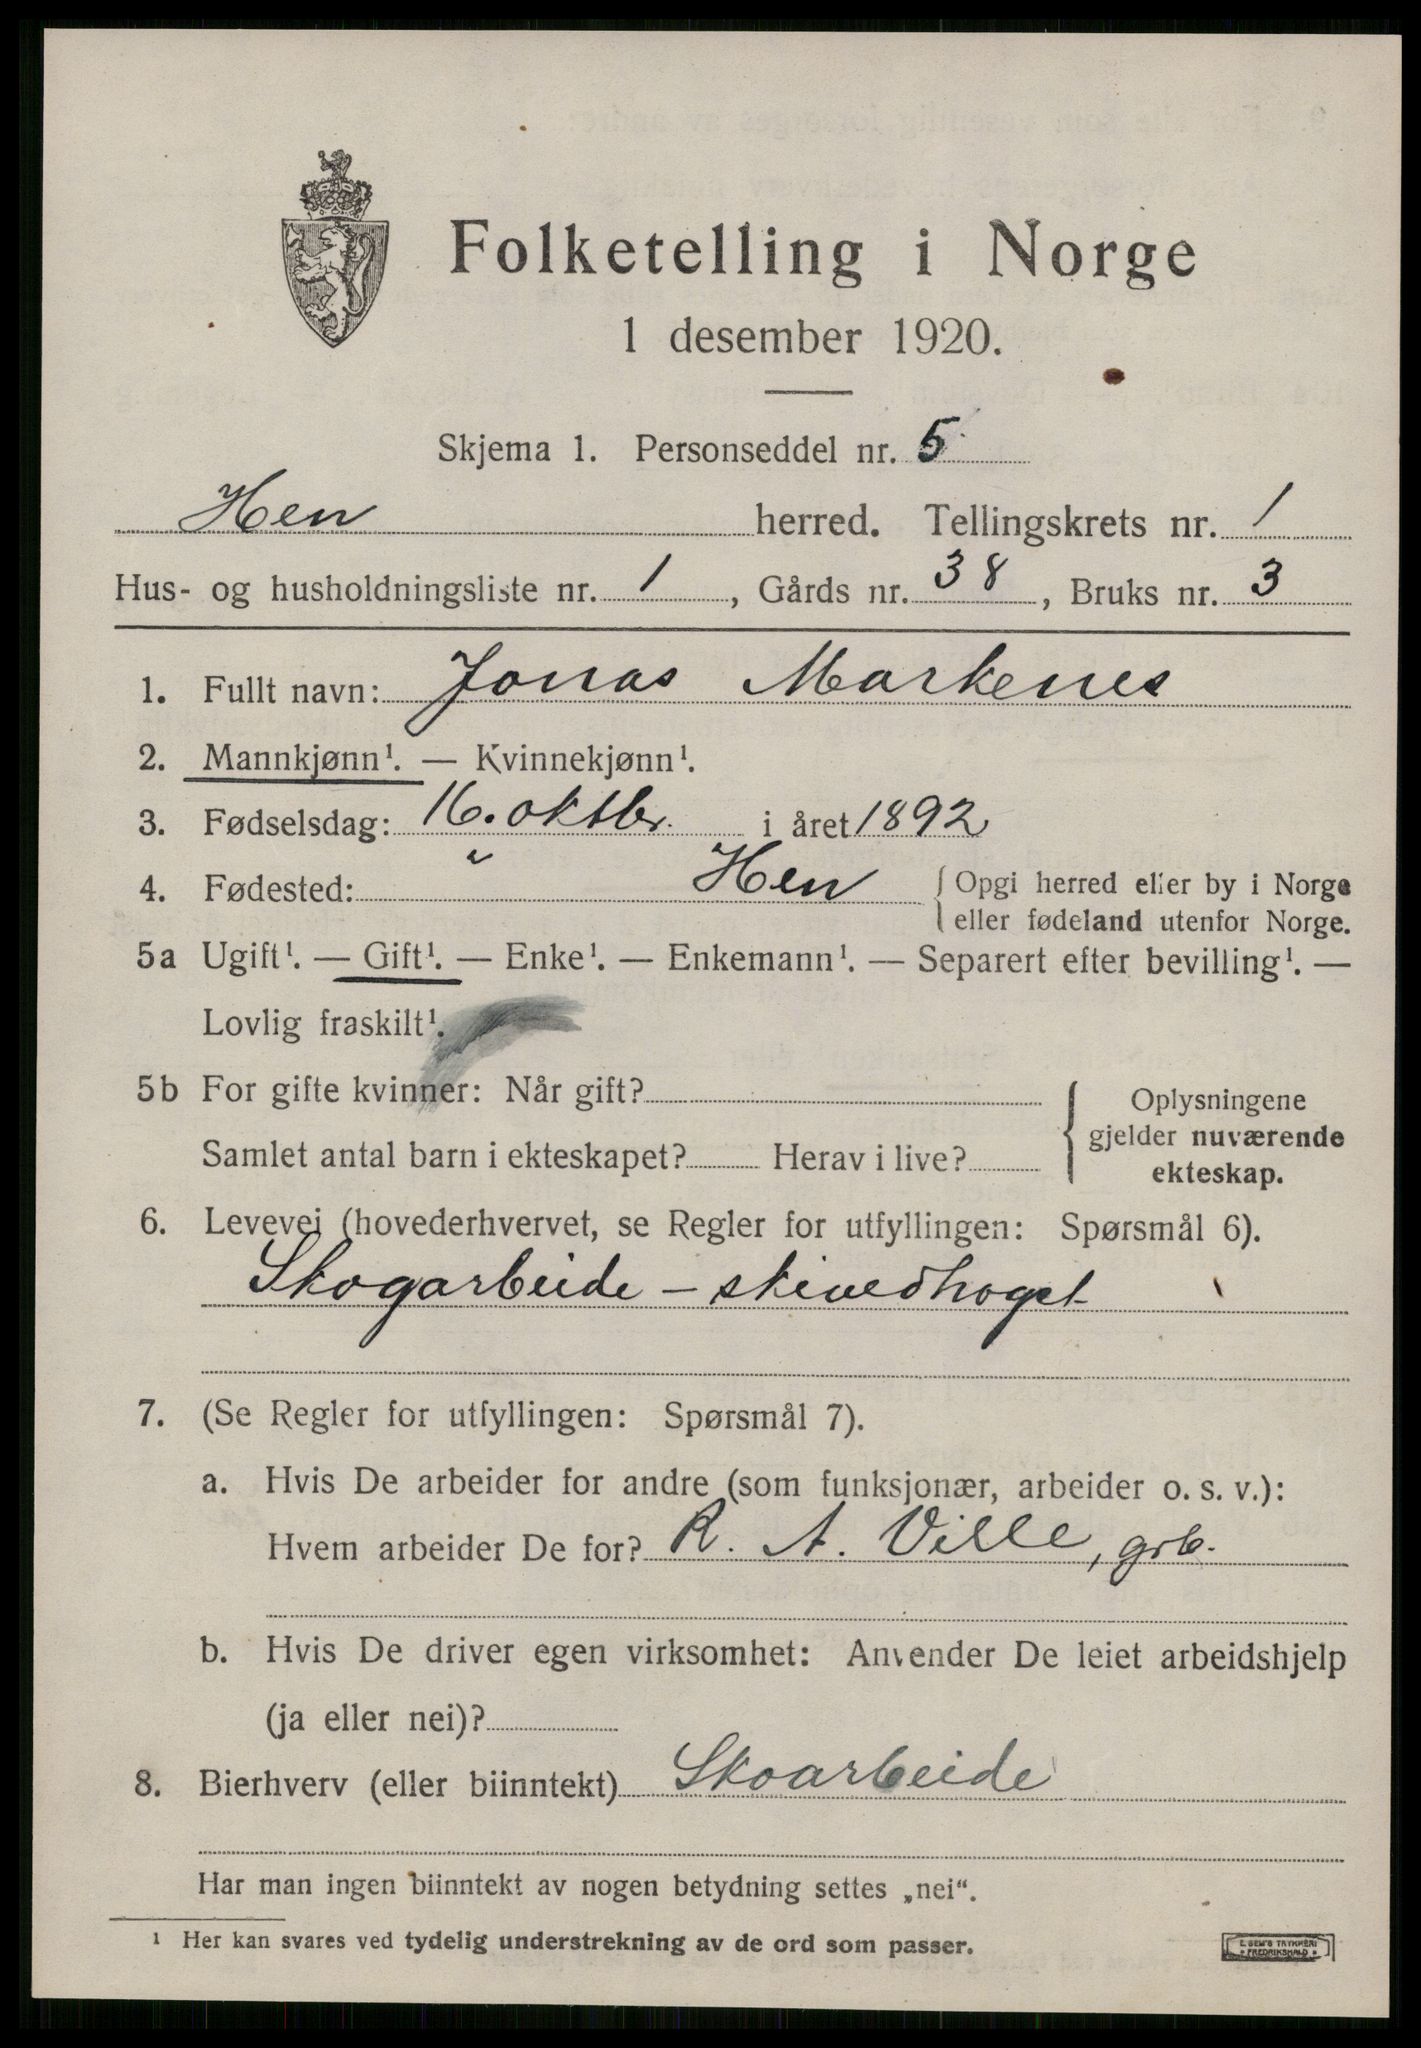 Folketelling i Norge
1 desember 1920.
Skjema 1. Personseddel nr. 5
Hen herred. Tellingskrets nr. 1
Hus- og husholdningsliste nr. 1, Gårds nr. 38, Bruks nr. 3
1. Fullt navn: Jonas Markenes
2. Mannkjønn¹. — Kvinnekjønn¹.
3. Fødselsdag: 16. oktbr. i året 1892
4. Fødested: Hen { Opgi herred eller by i Norge
eller fødeland utenfor Norge.
5a Ugift¹. — Gift¹. — Enke¹. — Enkemann¹. — Separert efter bevilling¹. —
Lovlig fraskilt¹.
5b For gifte kvinner: Når gift?
Samlet antal barn i ekteskapet? Herav i live?
Oplysningene
gjelder nuværende
ekteskap.
6. Levevei (hovederhvervet, se Regler for utfyllingen: Spørsmål 6).
Skogarbeide – skivedhogst
7. (Se Regler for utfyllingen: Spørsmål 7).
a. Hvis De arbeider for andre (som funksjonær, arbeider o. s. v.):
Hvem arbeider De for? R. A. Ville, grb.
b. Hvis De driver egen virksomhet: Anvender De leiet arbeidshjelp
(ja eller nei)?
8. Bierhverv (eller biinntekt) Skoarbeide
Har man ingen biinntekt av nogen betydning settes „nei“.
¹ Her kan svares ved tydelig understrekning av de ord som passer.
E. SEM'S TRYKKERI
FREDRIKSHALD